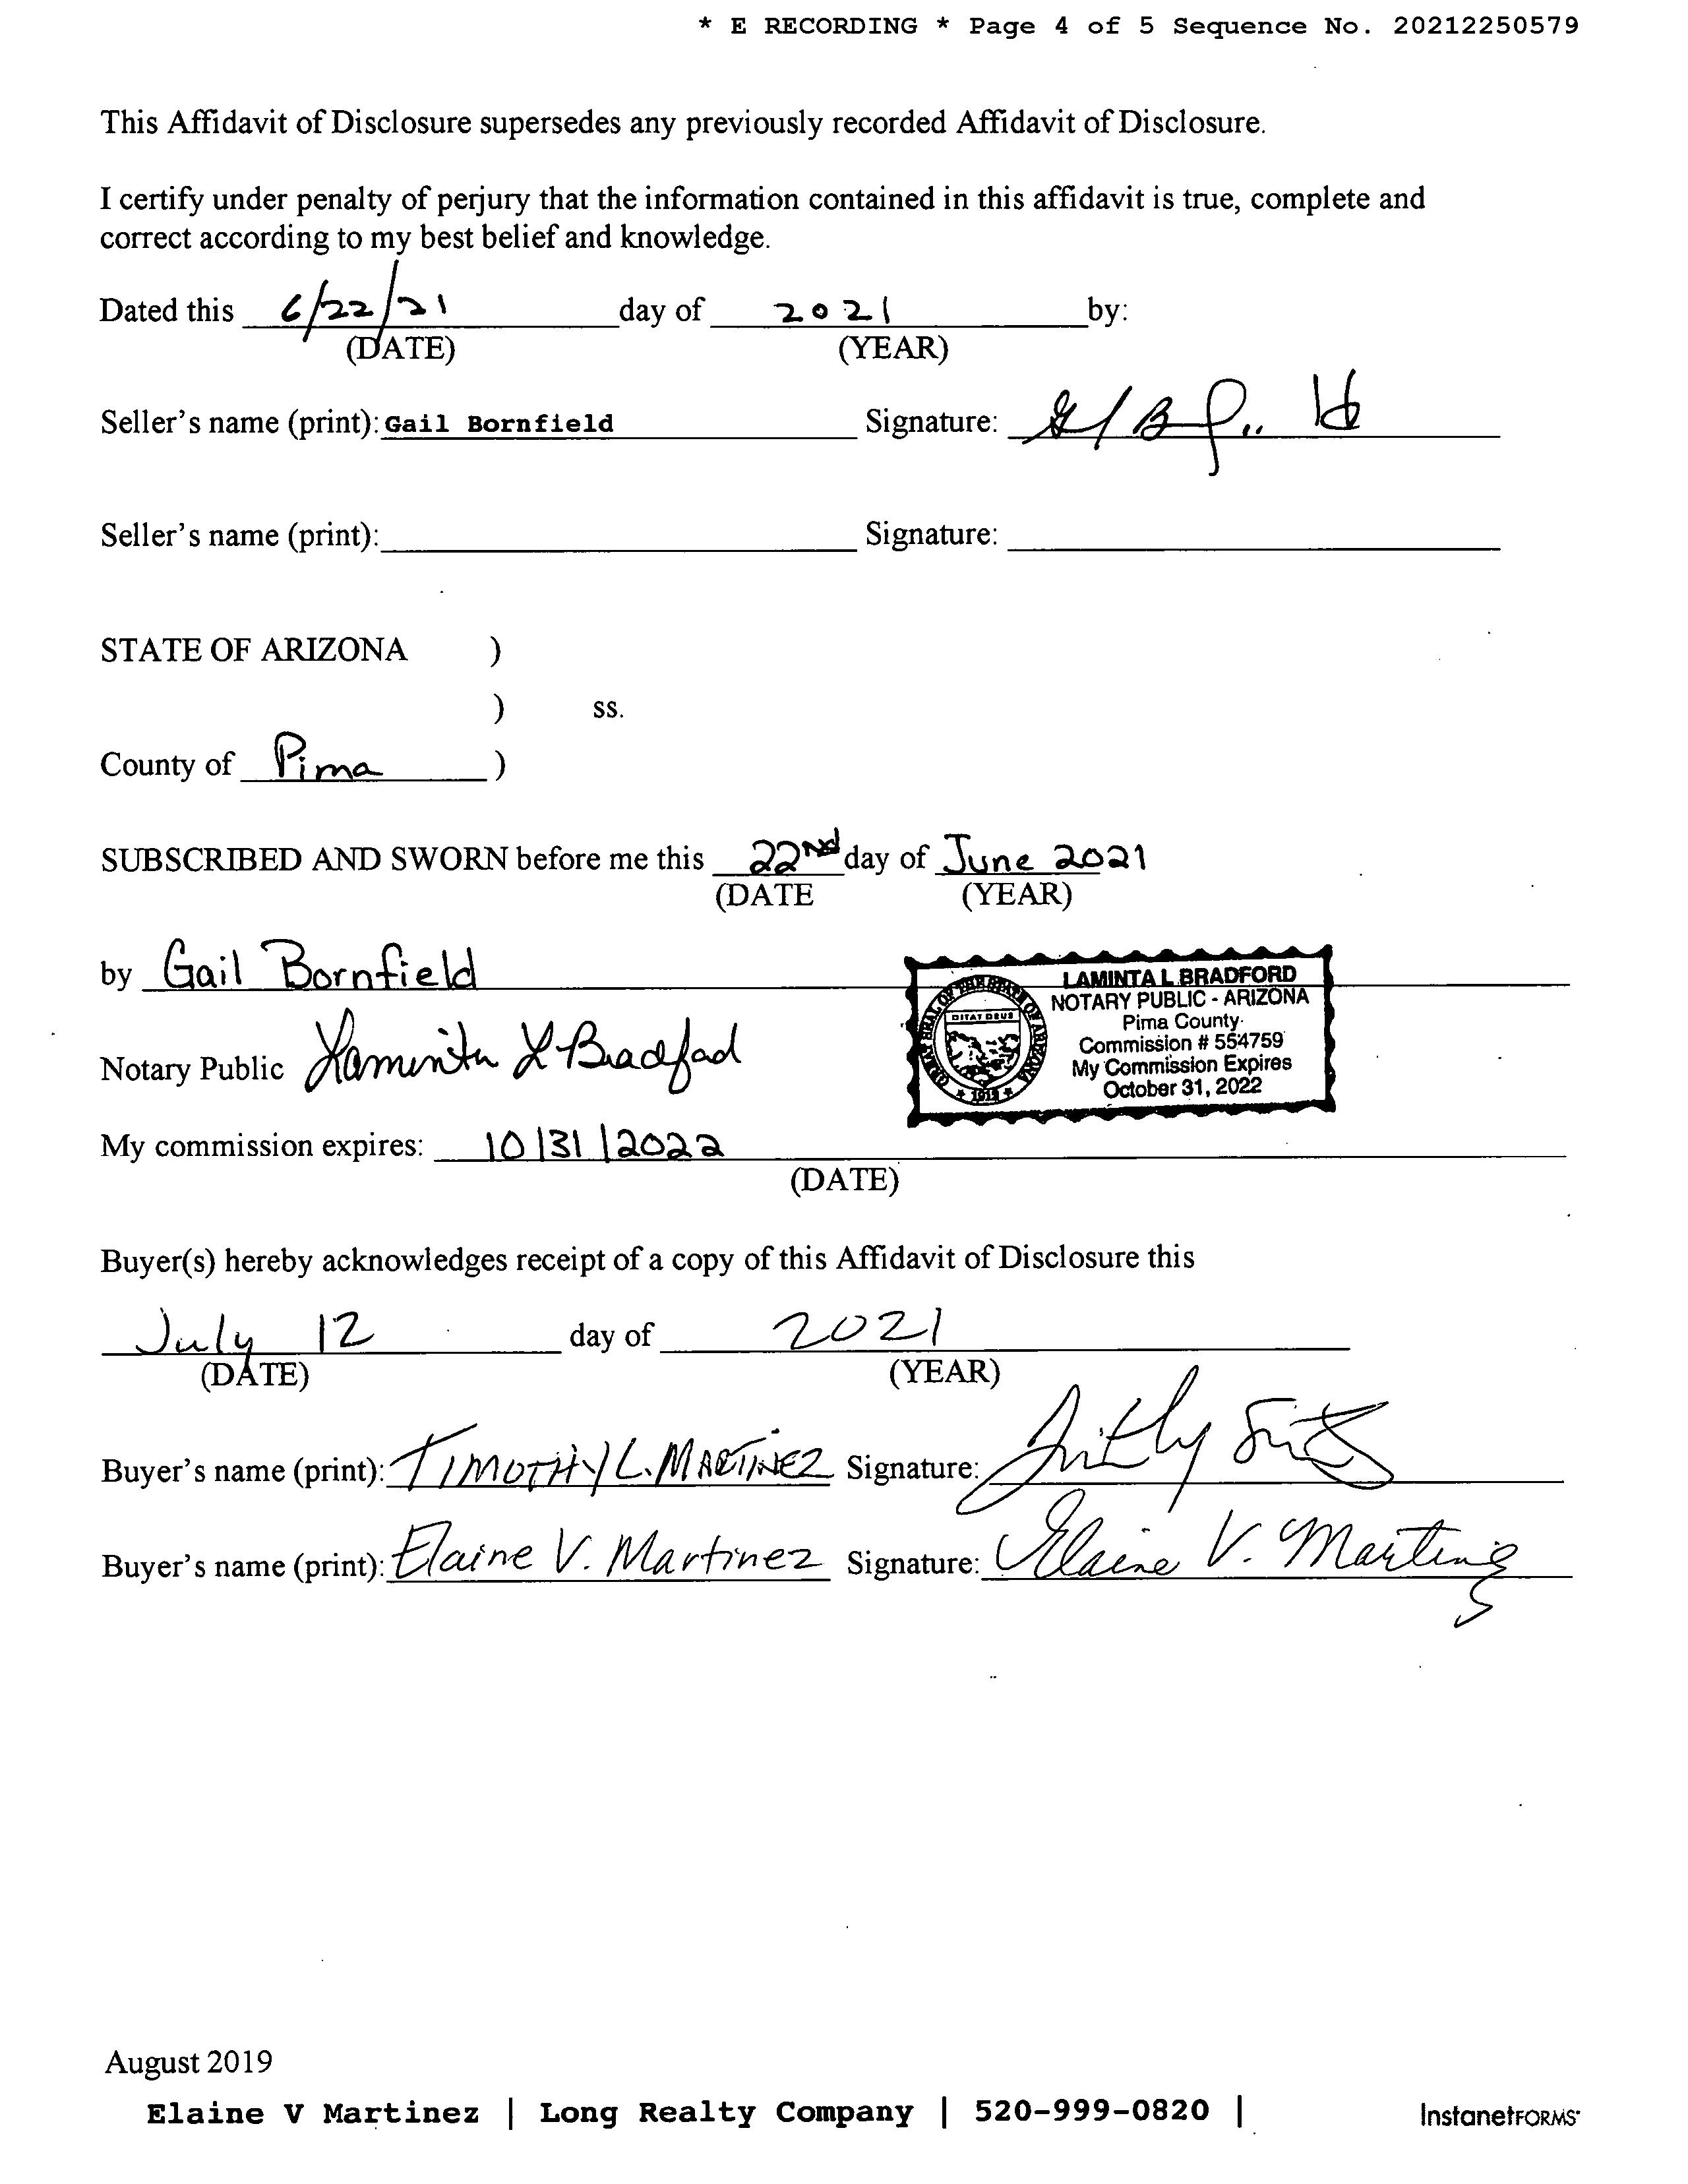 * E RECORDING * Page 4 of 5 Sequence No. 20212250579
This Affidavit of Disclosure supersedes any previously recorded Affidavit of Disclosure.
I certify under penalty of perjury that the information contained in this affidavit is true, complete and
correct according to my best belief and knowledge.
Dated this 6/22/21 day of 2021 by:
(DATE) (YEAR)
Seller's name (print): Gail Bornfield Signature:
Seller's name (print): Signature:
STATE OF ARIZONA )
) ss.
County of Pima )
SUBSCRIBED AND SWORN before me this 22nd day of June 2021
(DATE (YEAR)
by Gail Bornfield
LAMINTA L BRADFORD
NOTARY PUBLIC - ARIZONA
Pima County
Commission # 554759
My Commission Expires
October 31, 2022
GREAT SEAL OF THE STATE OF ARIZONA
DITAT DEUS
1912
Notary Public Laminta L Bradford
My commission expires: 10/31/2022
(DATE)
Buyer(s) hereby acknowledges receipt of a copy of this Affidavit of Disclosure this
July 12 day of 2021
(DATE) (YEAR)
Buyer's name (print): TIMOTHY L. MARTINEZ Signature:
Buyer's name (print): Elaine V. Martinez Signature: Elaine V. Martinez
August 2019
Elaine V Martinez | Long Realty Company | 520-999-0820 |
InstanetFORMS